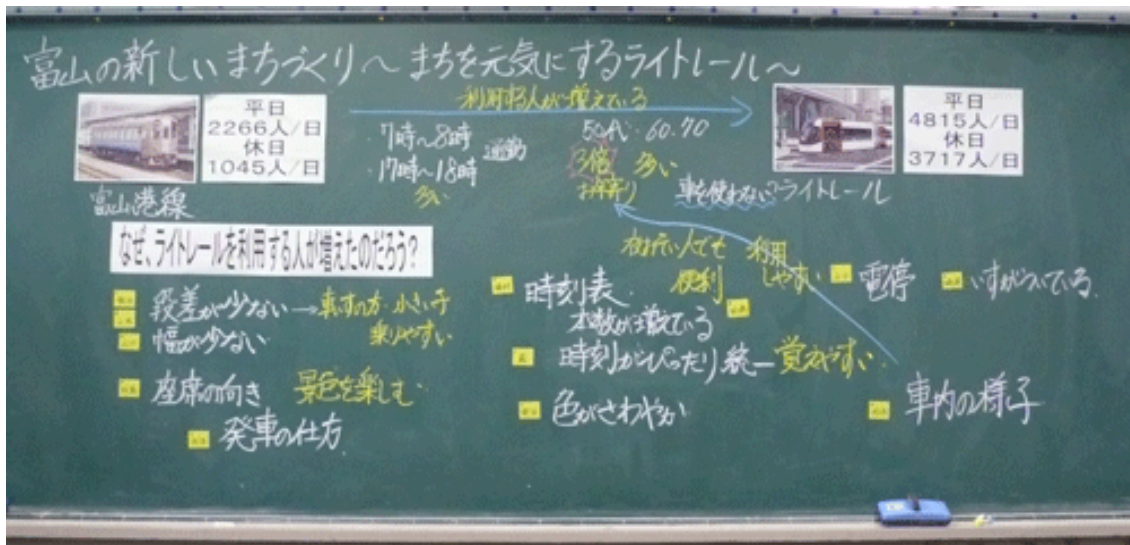 富山の新しいまちづくり～まちを元気にするライトレール～
平日
2266人/日
休日
1045人/日
富山港線
利用する人が増えている
・7時～8時
・17時～18時
通勤
多い
50代・60.70
3倍 多い
お年寄り
車を使わない?
平日
4815人/日
休日
3717人/日
ライトレール
なぜ、ライトレールを利用する人が増えたのだろう?
段差が少ない→車いすの方 小さい子
乗りやすい
幅が少ない
座席の向き 景色を楽しむ
発車の仕方
時刻表
本数が増えている
便利
時刻がぴったり統一 覚えやすい
色がさわやか
利用
しやすい
電停
いすがついている
車内の様子